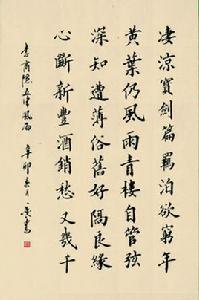 凄涼寶劍篇羈泊欲窮年
黃葉仍風雨青樓自管弦
深知遭薄俗舊好隔良緣
心斷新豐酒銷愁又幾千
李商隱五律風雨 辛卯